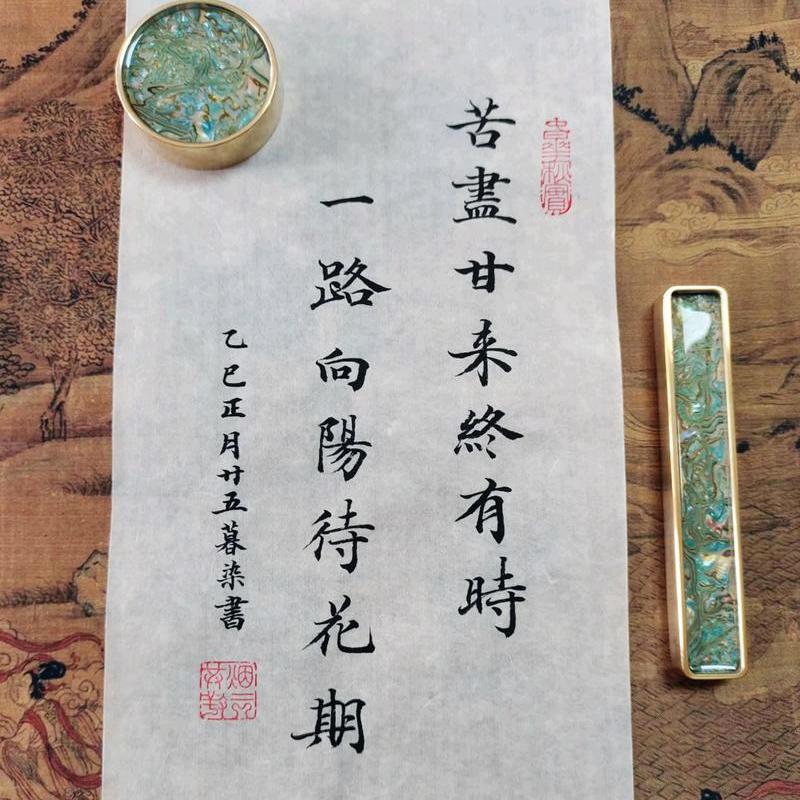 苦盡甘来終有時
一路向陽待花期
乙巳正月廿五暮染書
春華秋實